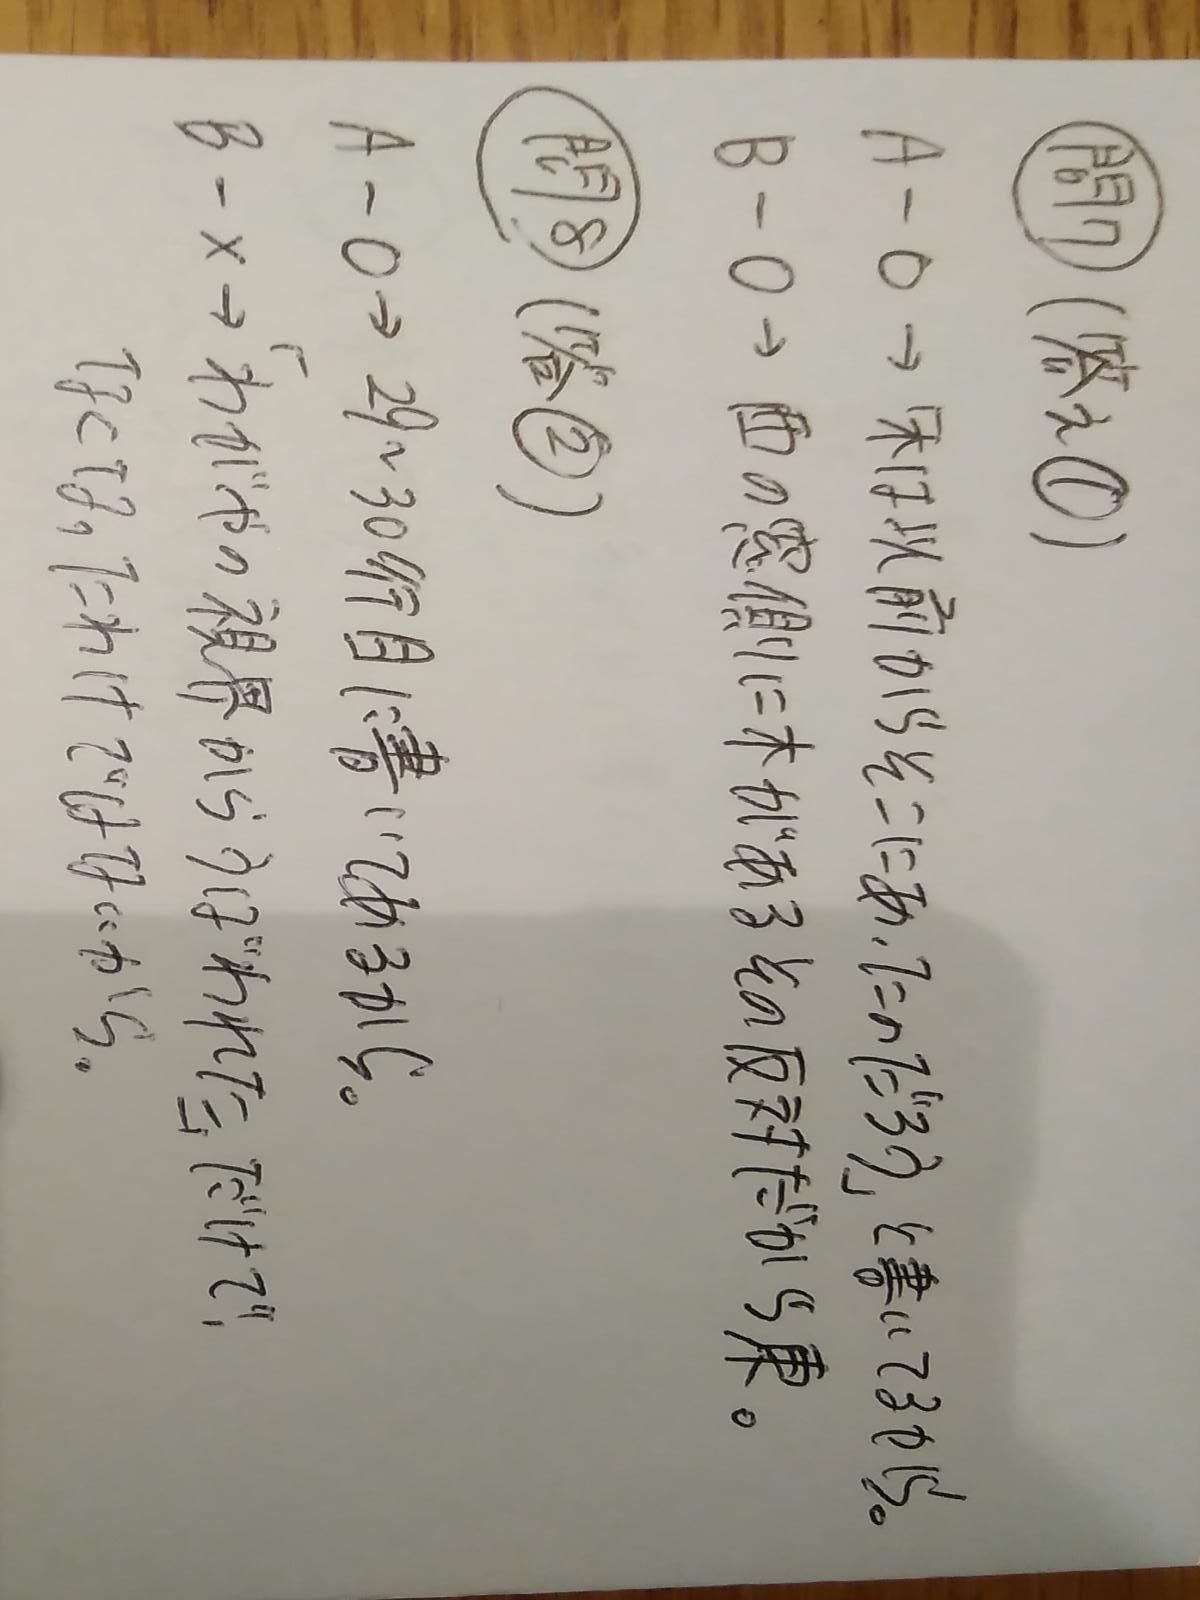 問7 (答え①)
A-○→木は以前からそこにあったのだろう」と書いてるから。
B-○→西の窓側に木があるその反対だから東。
問8 (答②)
A-○→29~30行目に書いてあるから。
B-×→「わがやの視界からうばわれた」だけで、
なくなったわけではないから。